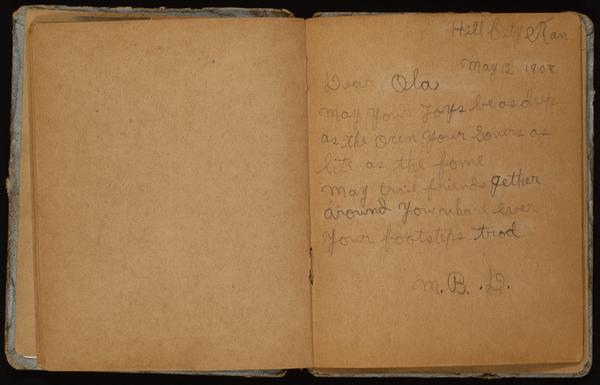 Hill City Kan
May 12 1908
Dear Ola
May your Joys be as deep
as the Ocen your Sowers as
lite as the fome
may true friends gether
around you whare ever
your footsteps trod
M. B. D.